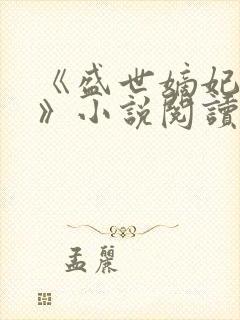 《盛世嫡妃
》小說閱讀
孟麗